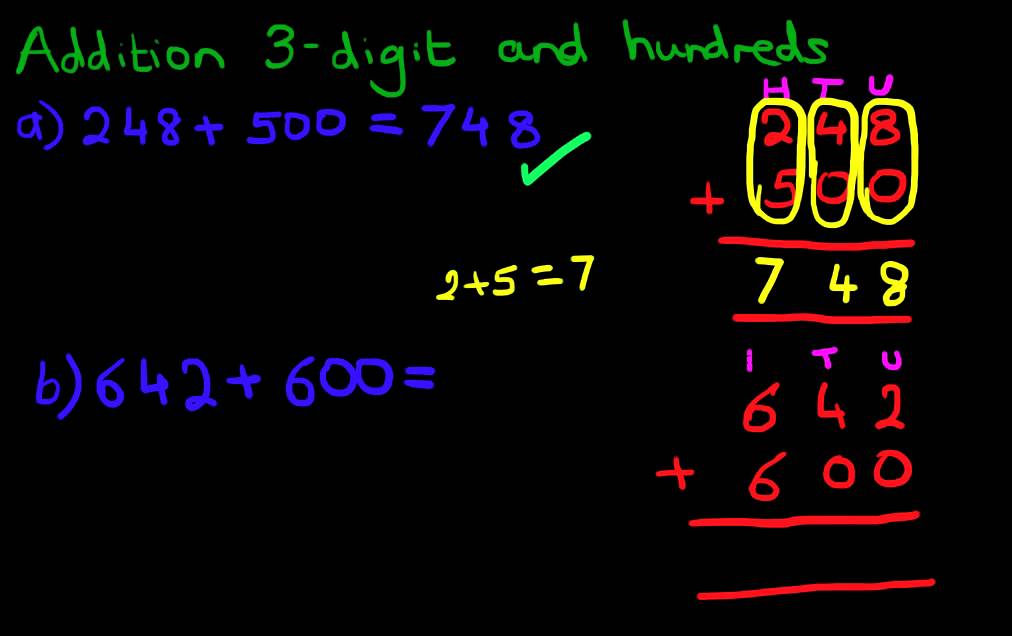 Addition 3-digit and hundreds
a) 248 + 500 = 748
H T U
2 4 8
+ 5 0 0
7 4 8
2+5=7
b) 642 + 600 =
I T U
6 4 2
+ 6 0 0